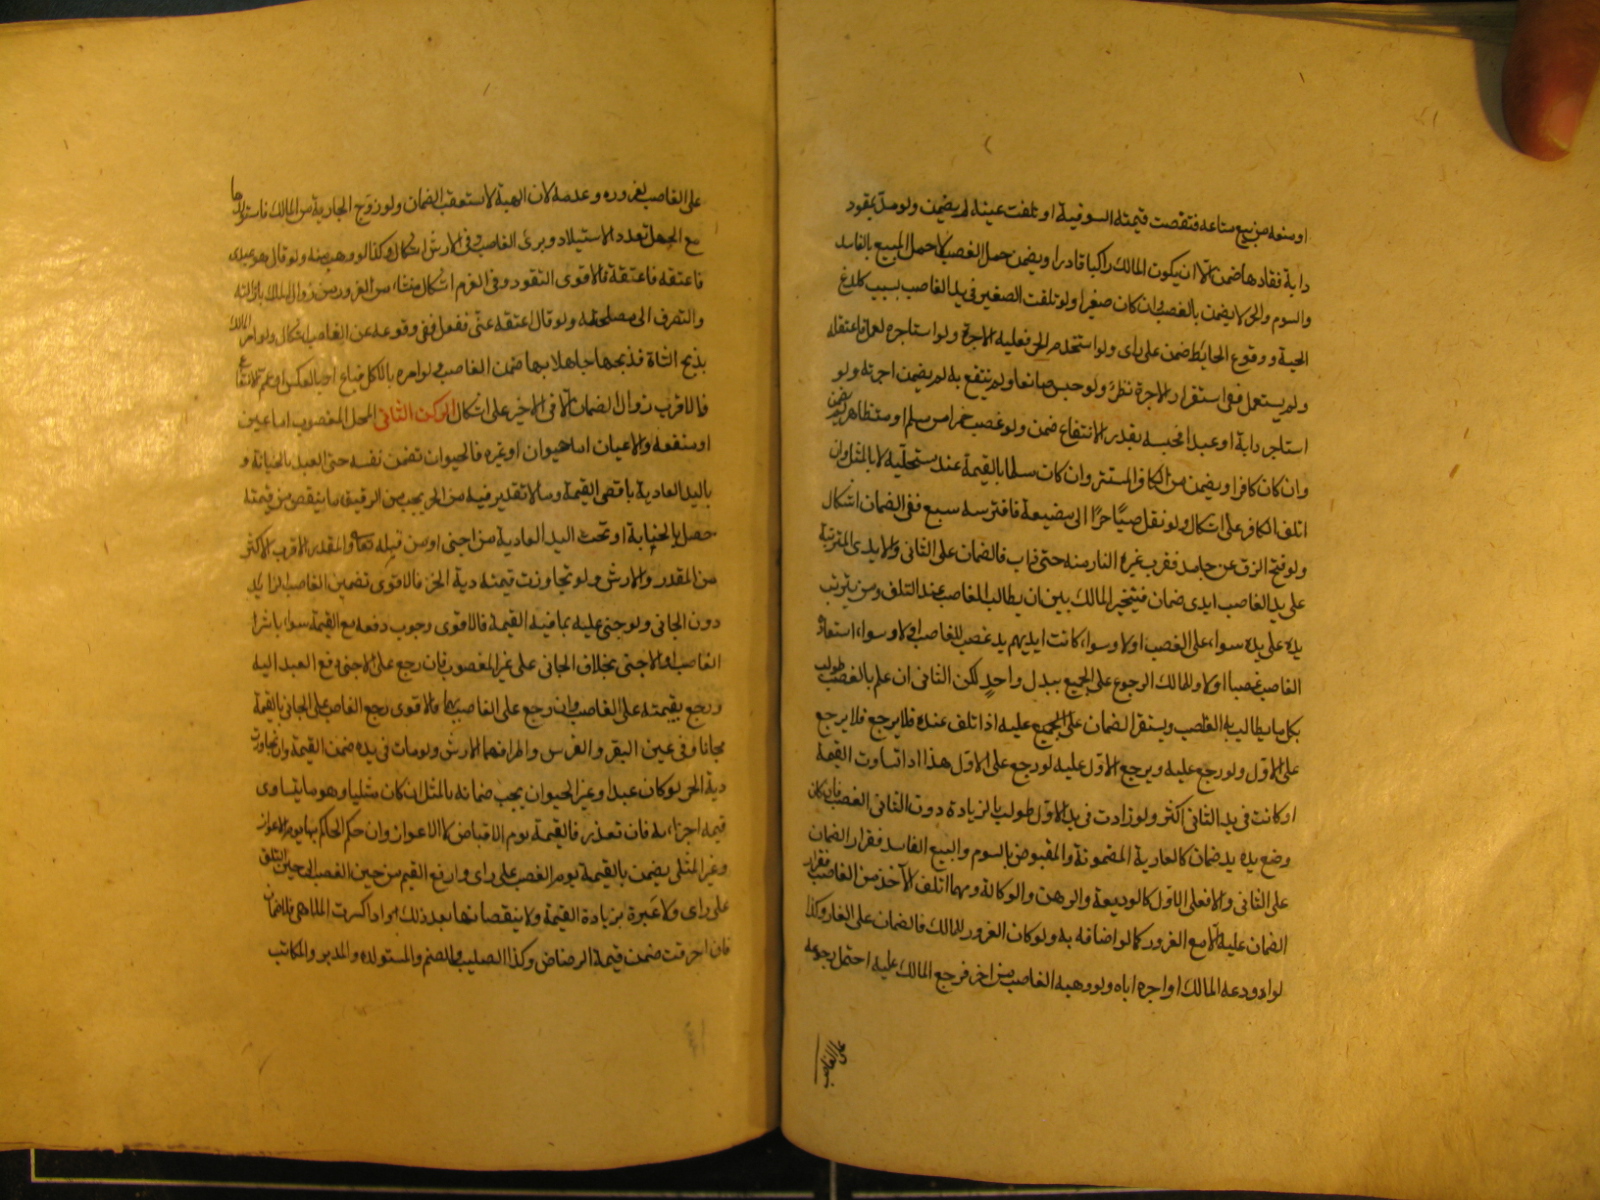 او منعه من بيع متاعه فنقصت قيمته السوقية او تلفت عينه لم يضمن ولو مد بمقود
دابة فقادها ضمن الا ان يكون المالك راكبا قادرا ويضمن حمل الغصب لا حمل المبيع بالفاسد
والسوم والحر لا يضمن بالغصب وان كان صغيرا ولو تلفت الصغير في يد الغاصب بسبب كلدغ
الحية ووقوع الحايط ضمن على راى ولو استخدم الحر فعليه الاجرة ولو استاجره لعمل فاعتقله
ولم يستعمل ففى استقرار الاجرة نظر ولو حبس صانعا ولم ينتفع به لم يضمن اجرته ولو
استاجر دابة او عبدا فحبسه بقدر الانتفاع ضمن ولو غصب خمرا من مسلم او متظاهر لم يضمن
وان كان كافرا ويضمن من الكافر المستتر وان كان مسلما بالقيمة عند مستحليه لا بالمثل وان
اتلف الكافر على اشكال ولو نقل صبيا حرا الى مضيعة فافترسه سبع ففى الضمان اشكال
ولو فتح الزق عن جامد فقرب غيره النار منه حتى ذاب فالضمان على الثانى والايدى المترتبة
على يد الغاصب ايدى ضمان فيتخير المالك بين ان يطالب الغاصب عند التلف ومن يترتب
يده على يده سواء على الغصب او لا وسواء كانت ايديهم يد غصب للغاصب او لا وسواء استعاده
الغاصب غصبا او لا وللمالك الرجوع على الجميع ببدل واحد لكن الثانى ان علم بالغصب طولب
بكل ما يطالب به الغاصب ويستقر الضمان على الجميع عليه اذا تلف عنده فلا يرجع فلا يرجع
على الاول ولو رجع عليه ويرجع الاول عليه لو رجع على الاول هذا اذا تساوت القيمة
او كانت فى يد الثانى اكثر ولو زادت فى يد الاول طولب بالزيادة دون الثانى الغصب فان كان
وضع يده يد ضمان كالعارية المضمونة والمقبوض بالسوم والبيع الفاسد فقرار الضمان
على الثانى والا فعلى الاول كالوديعة والرهن والوكالة ومهما اتلف الآخذ من الغاصب فقرار
الضمان عليه الا مع الغرور كما لو اضافه به ولو كان الغرور للمالك فالضمان على الغار وكذا
لو اودعه المالك او اجره اياه ولو وهبه الغاصب من اخر فرجع المالك عليه احتمل رجوعه
على الغاصب
على الغاصب لغروره وعدمه لان الهبة لا تستعقب الضمان ولو زوج الجارية من المالك فاستولدها
مع الجهل نفذ الاستيلاد وبرئ الغاصب وفى الارش اشكال وكذا لو وهب منه ولو قال هو عبدى
فاعتقه فاعتقه فالاقوى النفوذ وفى الغرم اشكال منشاء من الغرور ومن زوال الملك بازالته
والتصرف الى مصلحته ولو قال اعتقه عنى ففعل ففى وقوعه عن الغاصب اشكال ولو امر المالك
بذبح الشاة فذبحها جاهلا بها ضمن الغاصب ولو امره بالاكل فباع او بالعكس او عم الانتفاع
فالاقرب زوال الضمان الا فى الاخير على اشكال الركن الثانى المحل المغصوب اما عين
او منفعة والاعيان اما حيوان او غيره فالحيوان تضمن نفسه حتى العبد بالجناية و
باليد العادية باقصى القيمة وما لا تقدير فيه من الحر يجب من الرقيق ما ينقص من قيمته
حصل بالجناية او تحت اليد العادية من اجنبى او من قبله تعالى والمقدر الاقرب الاكثر
من المقدر والارش ولو تجاوزت قيمته دية الحر فالاقوى تضمين الغاصب الزايد
دون الجانى ولو جنى عليه بما فيه القيمة فالاقوى وجوب دفعه مع القيمة سواء باشر
الغاصب او الاجنبى بخلاف الجانى على غير المغصوب فان رجع على الاجنبى دفع العبد اليه
ورجع بقيمته على الغاصب وان رجع على الغاصب بهما فالاقوى رجع الغاصب على الجانى بالقيمة
مجانا وفى عين البقر والفرس واطرافهما الارش ولو مات فى يده ضمن القيمة وان تجاوزت
دية الحر لو كان عبدا وغير الحيوان يجب ضمانه بالمثل ان كان مثليا وهو ما يتساوى
قيمة اجزاءه فان تعذر فالقيمة يوم الاقباض لا الاعواز وان حكم الحاكم بها يوم الاعواز
وغير المثلى يضمن بالقيمة يوم الغصب على راى وارفع القيم من حين الغصب الى حين التلف
على راى ولا عبرة بزيادة القيمة ولا ينقصانها بعد ذلك ولو اذا كسرت الملاهى فلا ضمان
فان احرقت ضمن قيمة الرضاض وكذا الصليب والصنم والمستولدة والمدبر والمكاتب